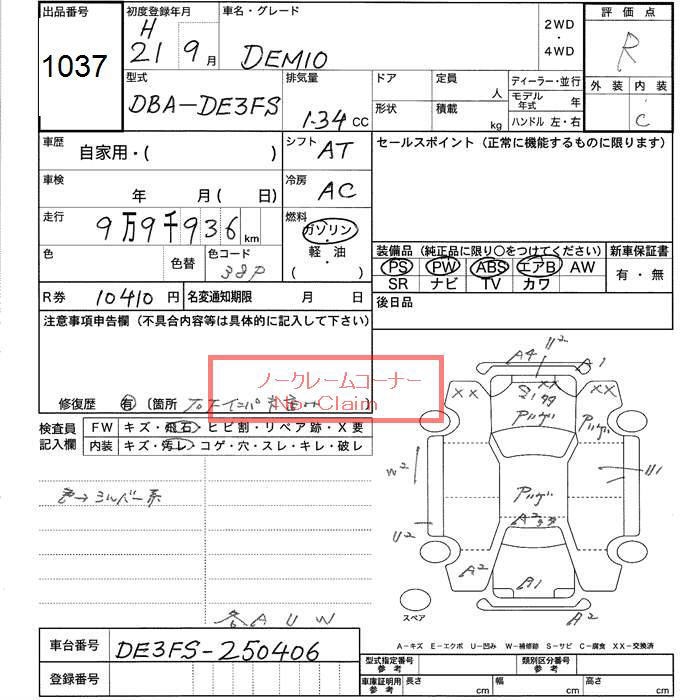 出品番号 初度登録年月 車名・グレード 2WD ・ 4WD 評価点
1037 H 21 9月 DEMIO R
型式 排気量 ドア 定員 人 ディーラー・並行 外装 内装
DBA-DE3FS 1.34 CC 形状 積載 kg モデル年式 年 C
ハンドル 左・右
車歴 自家用・( ) シフト AT セールスポイント (正常に機能するものに限ります)
車検 年 月 ( 日) 冷房 AC
走行 9万9千936 km 燃料 ガソリン・軽・油 ( )
色 色替 色コード 38P
装備品 (純正品に限り○をつけてください) 新車保証書
PS PW ABS エアB AW 有・無
SR ナビ TV カワ
R券 10410 円 名変通知期限 月 日 後日品
注意事項申告欄 (不具合内容等は具体的に記入して下さい)
ノークレームコーナー
No-Claim
修復歴 有 〔箇所
検査員記入欄 FW キズ・飛石・ヒビ割・リペア跡・X要
内装 キズ・汚レ・コゲ・穴・スレ・キレ・破レ
色→シルバー系
各 A U W
A4 U2 A1
XX XX XX
アゲ アゲ
W2 U1
アゲ
U2 A2
A2 A1 A2
スペア
A-キズ E-エクボ U-凹み W-補修跡 S-サビ C-腐食 XX-交換済
車台番号 DE3FS-250406
登録番号
型式指定番号 参考 類別区分番号 参考
車庫証明用 参考 長さ cm 幅 cm 高さ cm